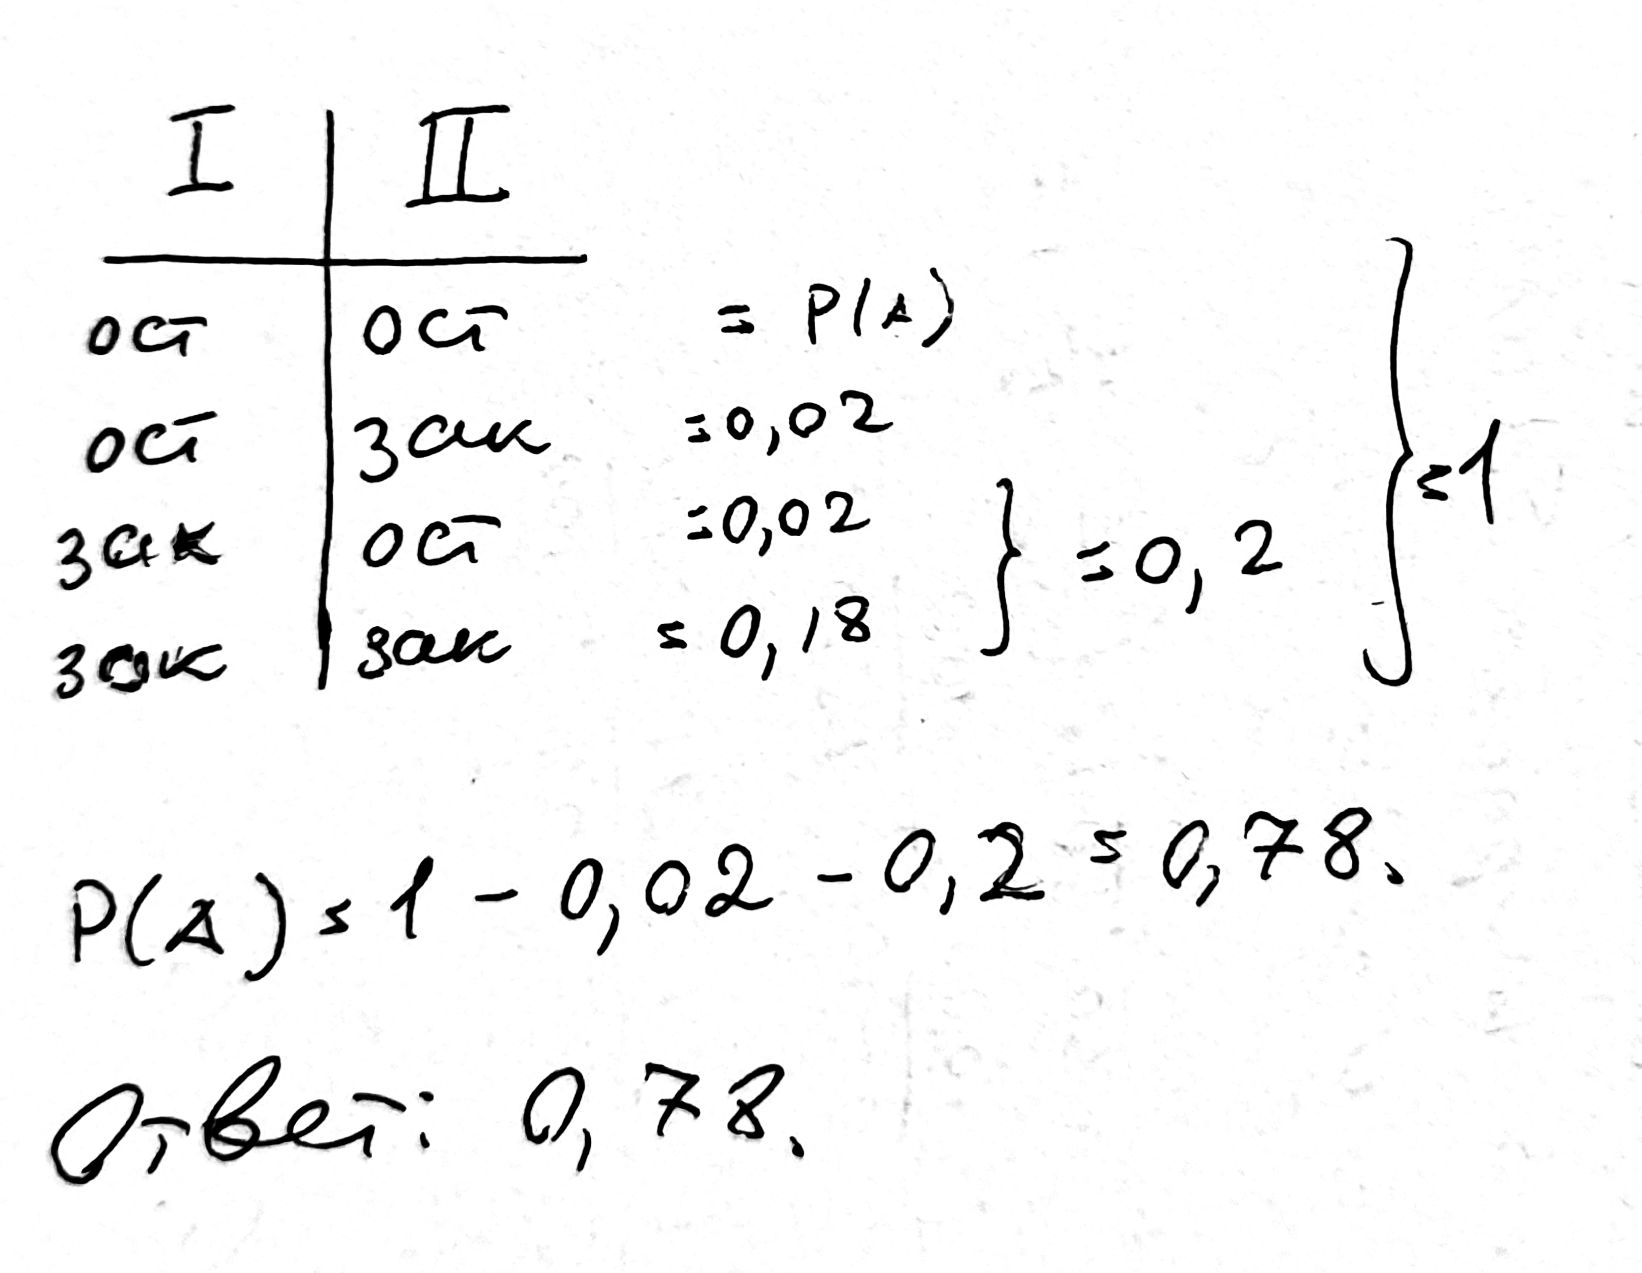 I II
ост ост = P(A)
ост зак = 0,02
зак ост = 0,02
зак зак = 0,18
= 0,2
= 1
P(A) = 1 - 0,02 - 0,2 = 0,78.
Ответ: 0,78.